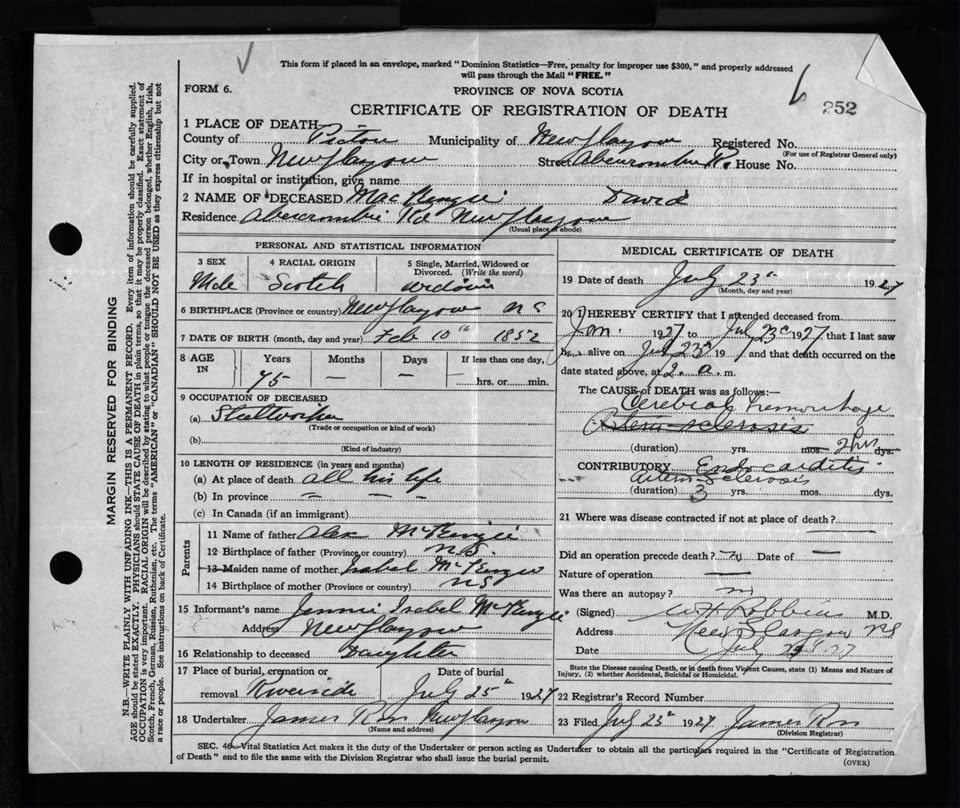 This form if placed in an envelope, marked "Dominion Statistics—Free, penalty for improper use $300," and properly addressed
will pass through the Mail "FREE."
FORM 6.
PROVINCE OF NOVA SCOTIA
252
CERTIFICATE OF REGISTRATION OF DEATH
1 PLACE OF DEATH
County of Pictou Municipality of New Glasgow Registered No.
(For use of Registrar General only)
City or Town New Glasgow Street Abercrombie Rd. House No.
If in hospital or institution, give name
2 NAME OF DECEASED MacKenzie David
Residence Abercrombie Rd New Glasgow
(Usual place of abode)
PERSONAL AND STATISTICAL INFORMATION
3 SEX 4 RACIAL ORIGIN 5 Single, Married, Widowed or Divorced. (Write the word)
Male Scotch
6 BIRTHPLACE (Province or country) New Glasgow N S
7 DATE OF BIRTH (month, day and year) Feb 10th 1852
8 AGE IN Years Months Days If less than one day,
75 — — hrs. or min.
9 OCCUPATION OF DECEASED
(a) Steelworker
(Trade or occupation or kind of work)
(b)
(Kind of industry)
10 LENGTH OF RESIDENCE (in years and months)
(a) At place of death all his life
(b) In province
(c) In Canada (if an immigrant)
Parents
11 Name of father Alex McKenzie
12 Birthplace of father (Province or country) N.S.
13 Maiden name of mother Isabel McKenzie
14 Birthplace of mother (Province or country) NS
15 Informant's name Jennie Isabel McKenzie
Address New Glasgow
16 Relationship to deceased Daughter
17 Place of burial, cremation or Date of burial
removal Riverside July 25th 1927
18 Undertaker James Ross New Glasgow
(Name and address)
MEDICAL CERTIFICATE OF DEATH
19 Date of death July 23rd 1927
(Month, day and year)
20 I HEREBY CERTIFY that I attended deceased from
Jan. 1927 to July 23rd 1927 that I last saw
h alive on July 23rd 19 and that death occurred on the
date stated above, at 2. a. m.
The CAUSE of DEATH was as follows:
Cerebral hemorrhage
Arterio-sclerosis
(duration) yrs. mos. 2 hrs dys.
CONTRIBUTORY Endocarditis
Arterio-Sclerosis
(duration) 3 yrs. mos. dys.
21 Where was disease contracted if not at place of death?
Did an operation precede death? no Date of —
Nature of operation —
Was there an autopsy?
(Signed) M.D.
Address New Glasgow NS
Date July 27
State the Disease causing Death, or in death from Violent Causes, state (1) Means and Nature of
Injury, (2) whether Accidental, Suicidal or Homicidal.
22 Registrar's Record Number
23 Filed July 1927 James Ross
(Division Registrar)
SEC. 40—Vital Statistics Act makes it the duty of the Undertaker or person acting as Undertaker to obtain all the particulars required in the "Certificate of Registration
of Death" and to file the same with the Division Registrar who shall issue the burial permit.
(OVER)
MARGIN RESERVED FOR BINDING
N.B.—WRITE PLAINLY WITH UNFADING INK—THIS IS A PERMANENT RECORD. Every item of information should be carefully supplied.
AGE should be stated EXACTLY. PHYSICIANS should STATE CAUSE OF DEATH in plain terms, so that it may be properly classified. Exact statement of
OCCUPATION is very important. RACIAL ORIGIN will be described by stating to what people or tongue the deceased person belonged, whether English, Irish,
Scotch, French, German, Russian, Ruthenian, etc. The terms "AMERICAN" or "CANADIAN" SHOULD NOT BE USED as they express citizenship but not
a race or people. See instructions on back of Certificate.